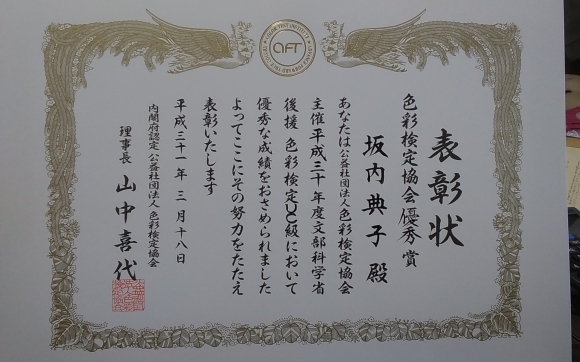 表彰状
色彩検定協会優秀賞
坂内典子 殿
あなたは公益社団法人色彩検定協会
主催平成三十年度文部科学省
後援 色彩検定UC級において
優秀な成績をおさめられました
よってここにその努力をたたえ
表彰いたします
平成三十一年 三月十八日
内閣府認定 公益社団法人色彩検定協会
理事長 山中喜代
AFT